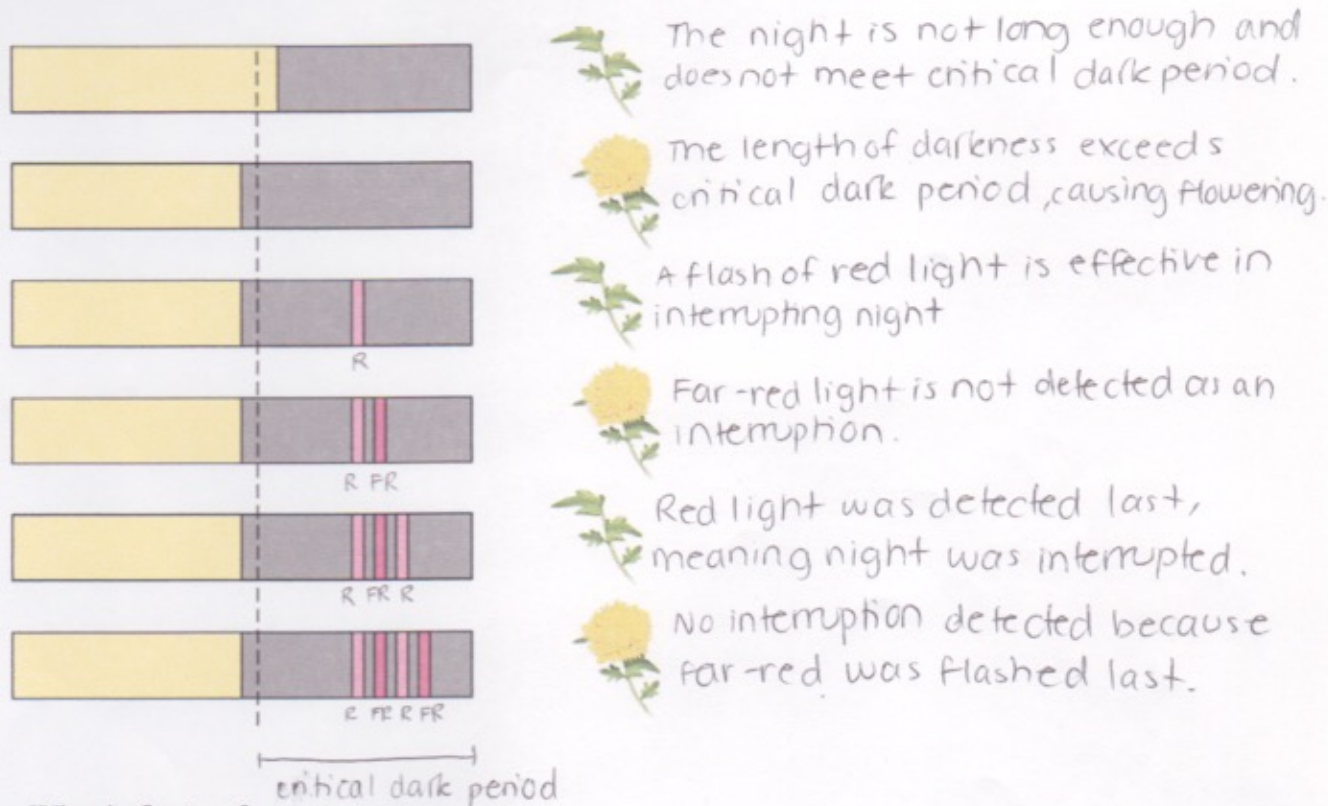 The night is not long enough and
does not meet critical dark period.
The length of darkness exceeds
critical dark period, causing flowering.
A flash of red light is effective in
interrupting night
R
Far-red light is not detected as an
interruption.
R FR
Red light was detected last,
meaning night was interrupted.
R FR R
No interruption detected because
far-red was flashed last.
R FR R FR
critical dark period